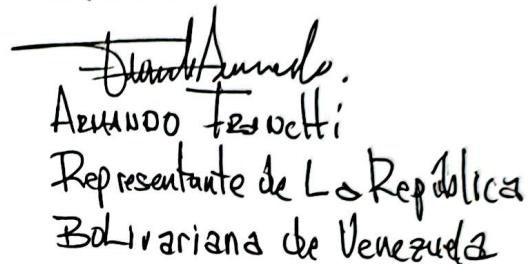 Armando Franchetti
Representante de La República
Bolivariana de Venezuela